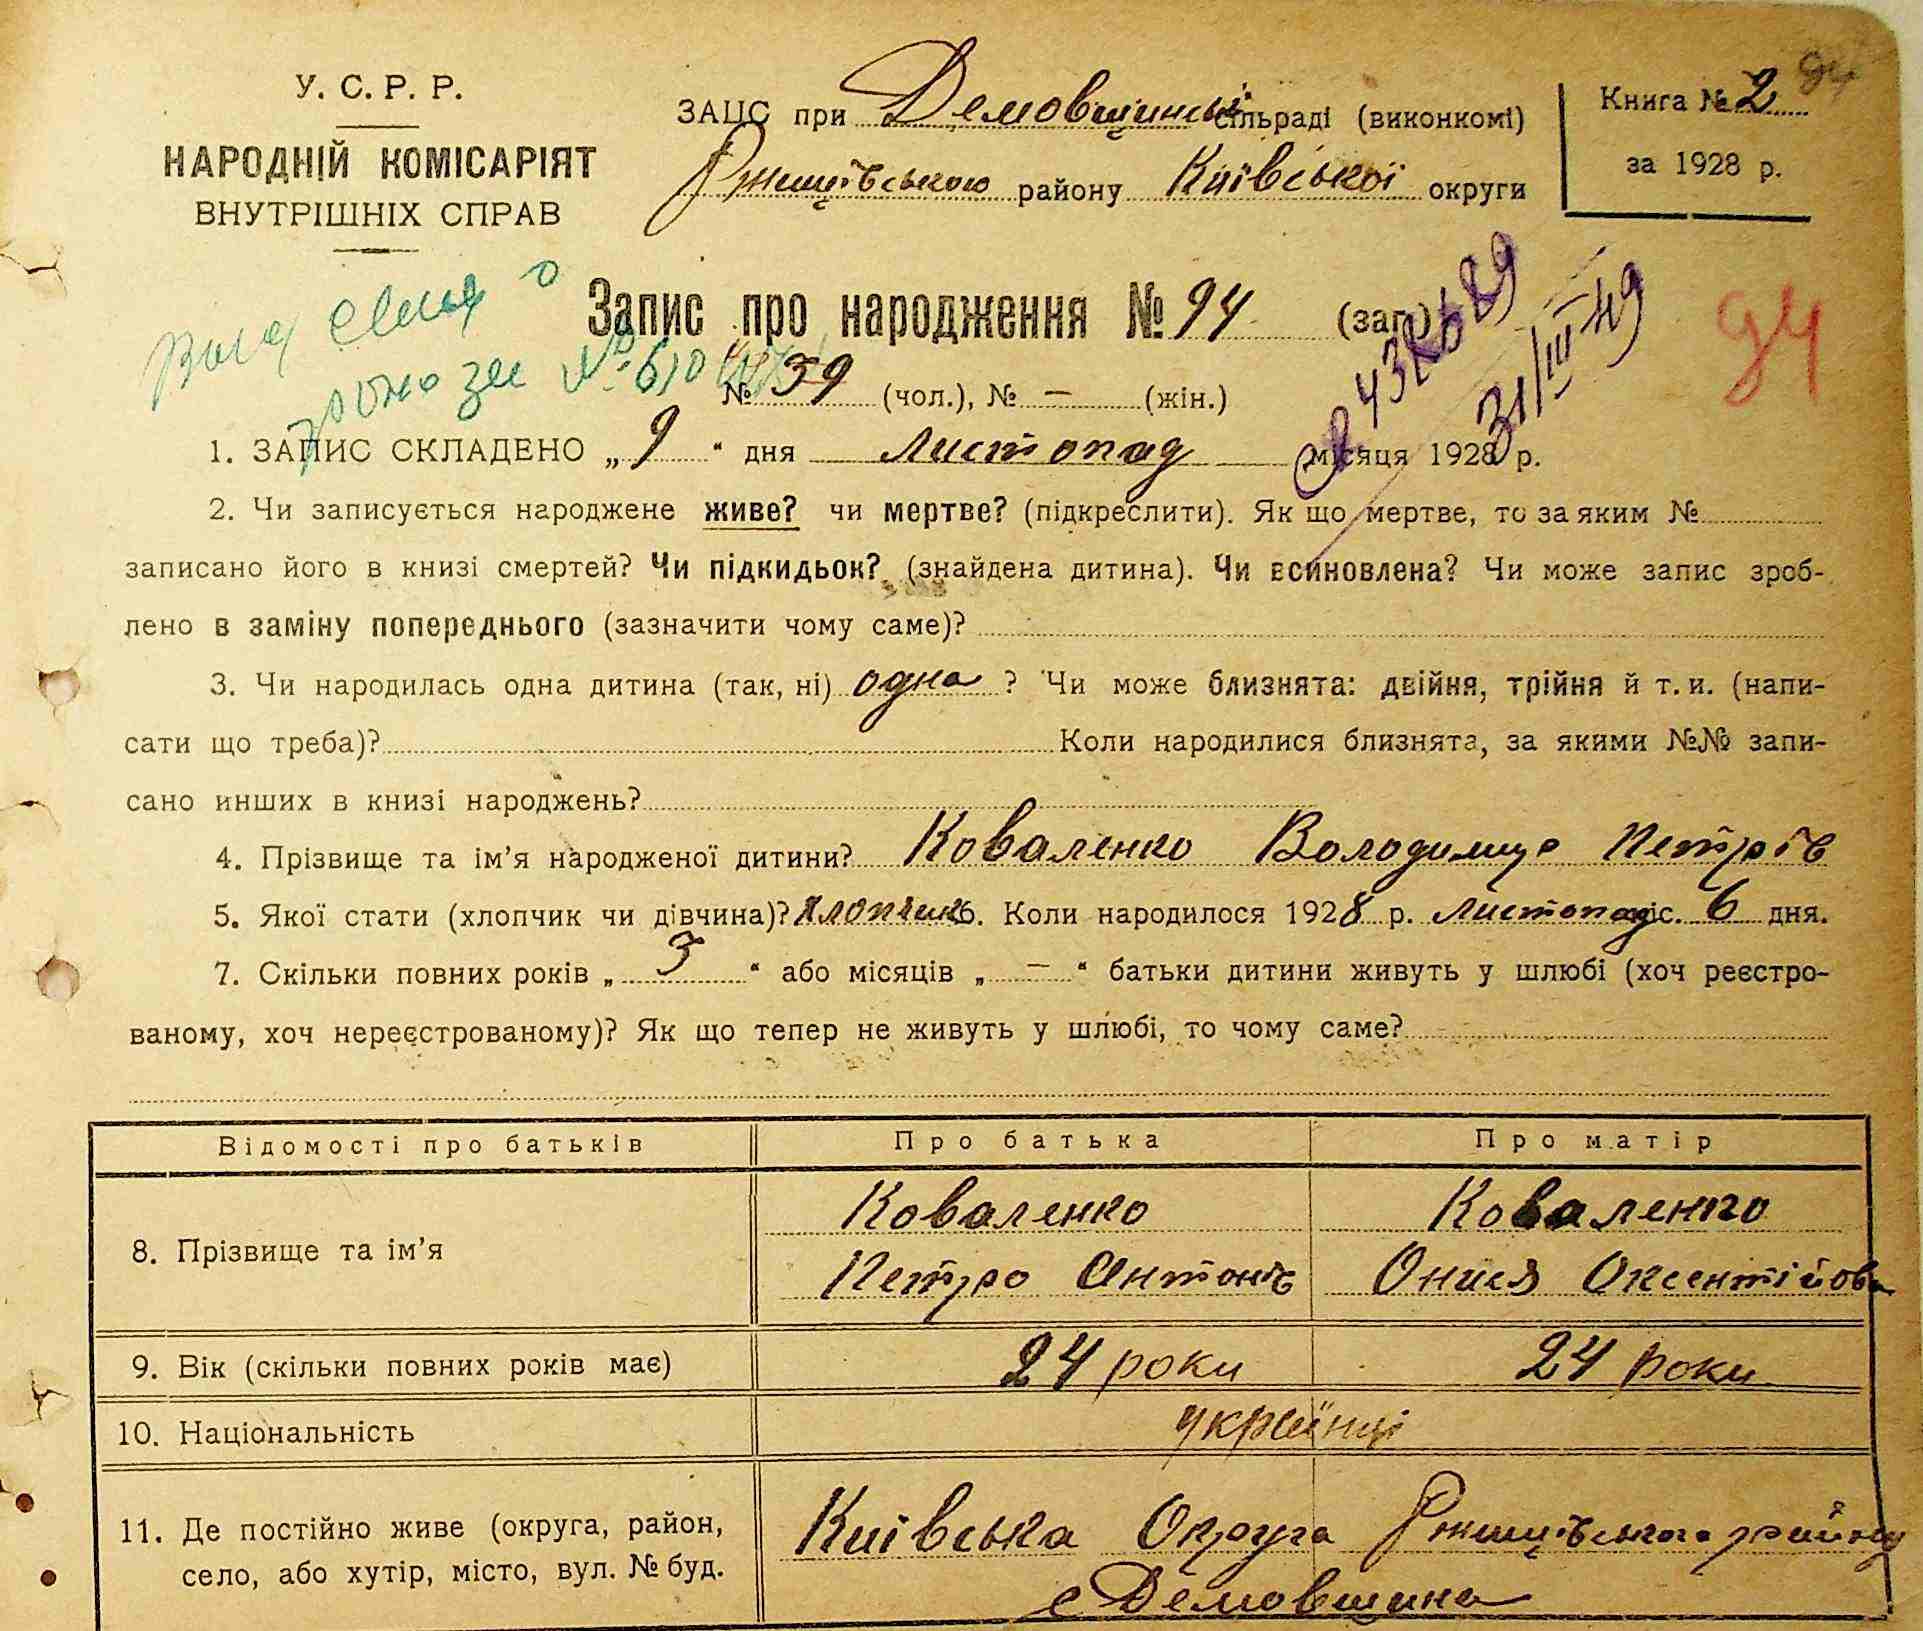 У. С. Р. Р.
НАРОДНІЙ КОМІСАРІЯТ
ВНУТРІШНІХ СПРАВ
ЗАЦС при Демовщинські сільраді (виконкомі)
Ржищівського району Київської округи
Книга № 2
за 1928 р.
94
Запис про народження № 94 (заг.)
№ 59 (чол.), № — (жін.)
31/III-49
94
1. ЗАПИС СКЛАДЕНО „ 9 “ дня листопад місяця 1928 р.
2. Чи записується народжене живе? чи мертве? (підкреслити). Як що мертве, то за яким №
записано його в книзі смертей? Чи підкидьок? (знайдена дитина). Чи всиновлена? Чи може запис зроб-
лено в заміну попереднього (зазначити чому саме)?
3. Чи народилась одна дитина (так, ні) одна ? Чи може близнята: двійня, трійня й т. и. (напи-
сати що треба)? Коли народилися близнята, за якими №№ запи-
сано инших в книзі народжень?
4. Прізвище та ім’я народженої дитини? Коваленко Володимир Петрів
5. Якої стати (хлопчик чи дівчина)? хлопчик 6. Коли народилося 1928 р. листопад міс. 6 дня.
7. Скільки повних років „ 3 “ або місяців „ — “ батьки дитини живуть у шлюбі (хоч реєстро-
ваному, хоч нереєстрованому)? Як що тепер не живуть у шлюбі, то чому саме?
Відомості про батьків Про батька Про матір
8. Прізвище та ім’я
Коваленко
Петро Антонів
Коваленко
Онися Оксентійова
9. Вік (скільки повних років має) 24 роки 24 роки
10. Національність українці
11. Де постійно живе (округа, район,
село, або хутір, місто, вул. № буд.
Київська Округа Ржищівського району
с Демовщина